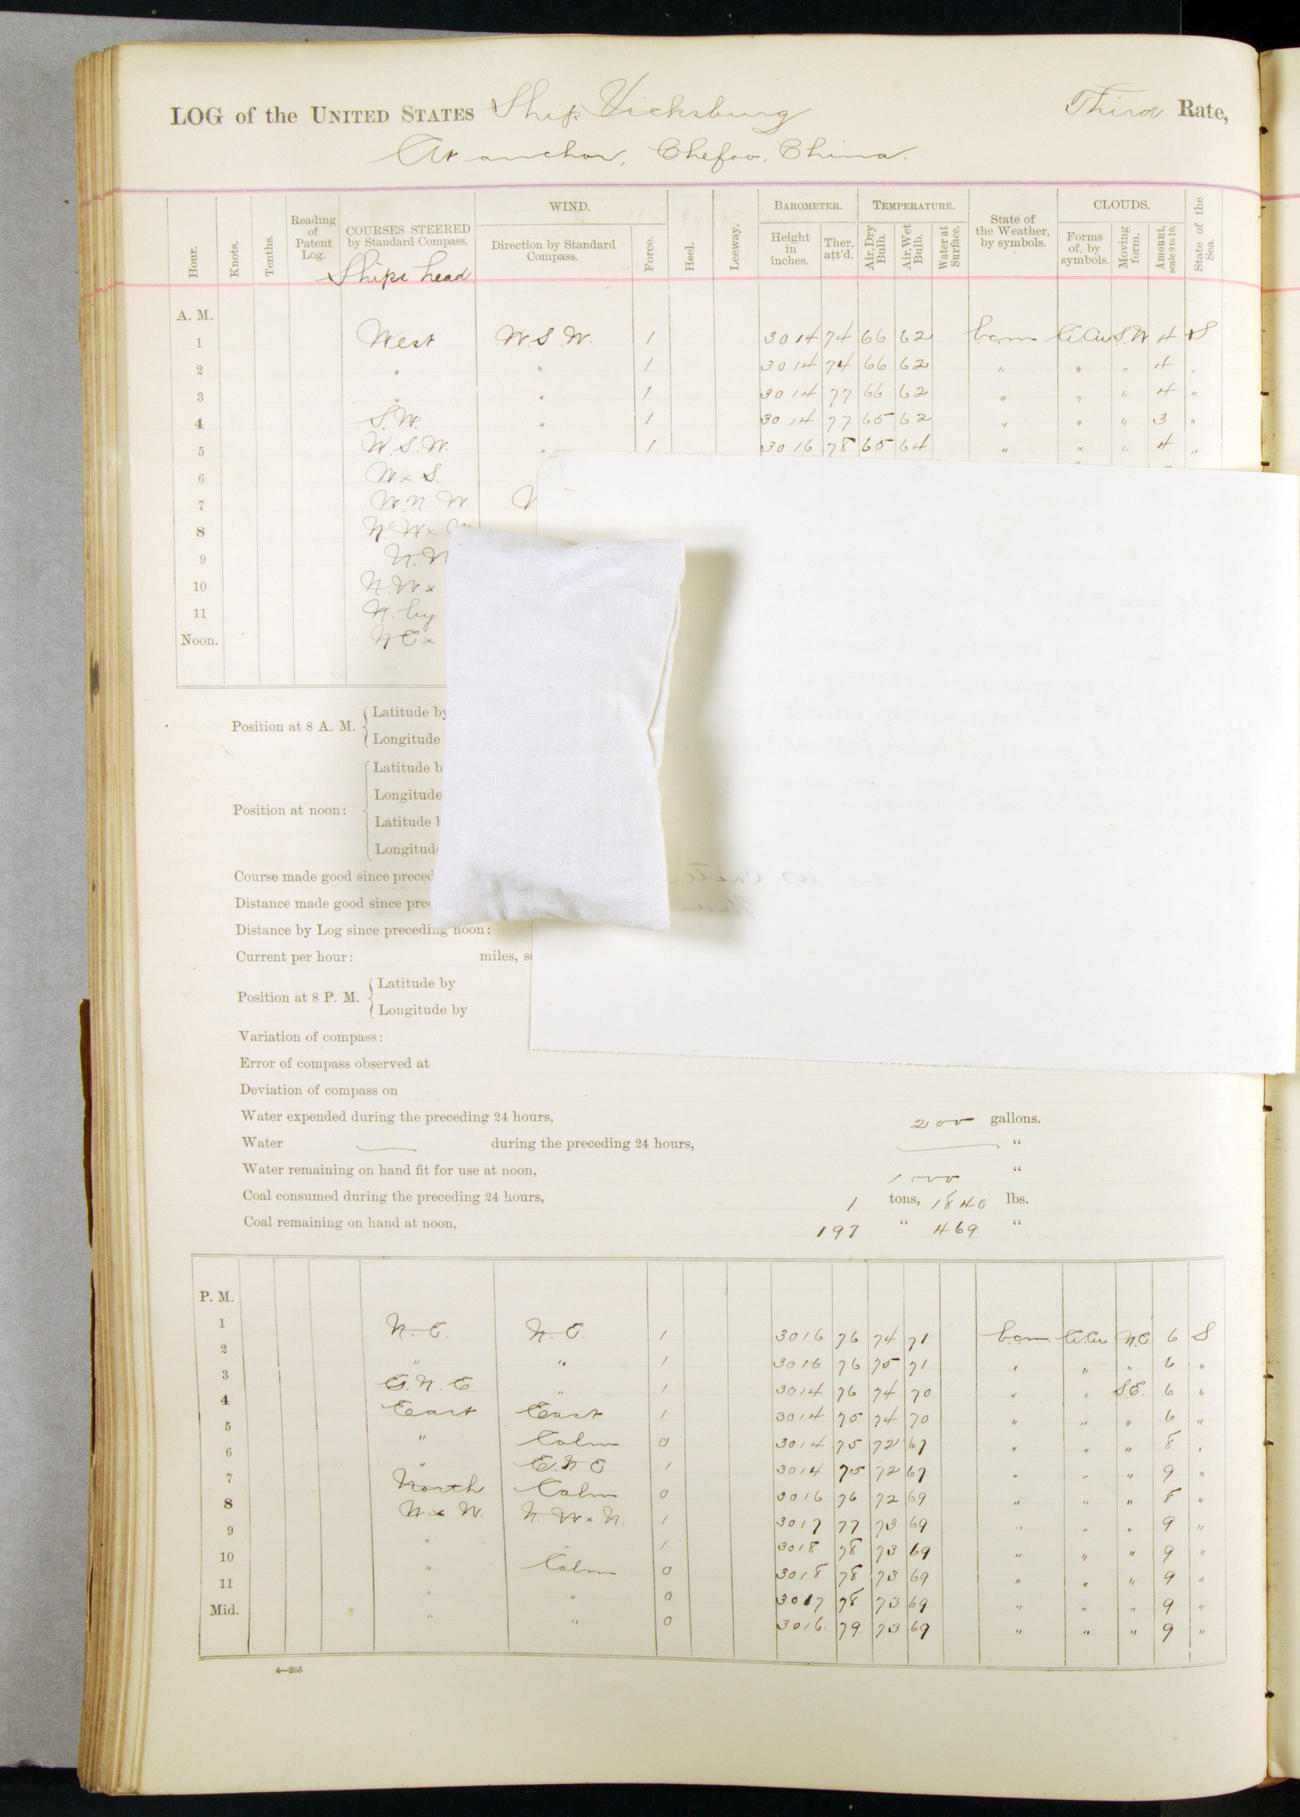 LOG of the UNITED STATES Ship Vicksburg Third Rate,
At anchor, Chefoo, China.
Hour. Knots. Tenths. Reading of Patent Log. COURSES STEERED by Standard Compass. Ships head WIND. Direction by Standard Compass. Force. Heel. Leeway. BAROMETER. Height in inches. Ther. att'd. TEMPERATURE. Air, Dry Bulb. Air, Wet Bulb. Water at Surface. State of the Weather, by symbols. CLOUDS. Forms of, by symbols. Moving form. Amount, scale 0 to 10. State of the Sea.
A. M.
1 West W.S.W. 1 30 14 74 66 62 bcm Ci.Cu S.W 4 S
2 " " 1 30 14 74 66 62 " " " 4 "
3 " " 1 30 14 77 66 62 " " " 4 "
4 S.W. " 1 30 14 77 65 62 " " " 3 "
5 W.S.W. " 1 30 16 78 65 64 " " " 4 "
6 W x S.
7 W.N.W.
8 N.W x
9 N.
10 N.W x
11 N. by
Noon. N E x
Position at 8 A. M. Latitude by
Longitude
Position at noon: Latitude b
Longitude
Latitude
Longitud
Course made good since preced
Distance made good since pre
Distance by Log since preceding noon:
Current per hour: miles, s
Position at 8 P. M. Latitude by
Longitude by
Variation of compass:
Error of compass observed at
Deviation of compass on
Water expended during the preceding 24 hours, 200 gallons.
Water — during the preceding 24 hours, — "
Water remaining on hand fit for use at noon, 1000 "
Coal consumed during the preceding 24 hours, 1 tons, 1840 lbs.
Coal remaining on hand at noon, 197 " 469 "
P. M.
1 N.E. N.E. 1 30 16 76 74 71 bcm Ci.Cu N.E 6 S
2 " " 1 30 16 76 75 71 " " " 6 "
3 E.N.E. " 1 30 14 76 74 70 " " S.E. 6 "
4 East East 1 30 14 75 74 70 " " " 6 "
5 " Calm 0 30 14 75 72 67 " " " 8 "
6 " E.N.E 1 30 14 75 72 67 " " " 9 "
7 North Calm 0 30 16 76 72 69 " " " 8 "
8 N x W. N.W x N. 1 30 17 77 73 69 " " " 9 "
9 " " 1 30 18 78 73 69 " " " 9 "
10 " Calm 0 30 18 78 73 69 " " " 9 "
11 " " 0 30 17 78 73 69 " " " 9 "
Mid. " " 0 30 16 79 73 69 " " " 9 "
4—265